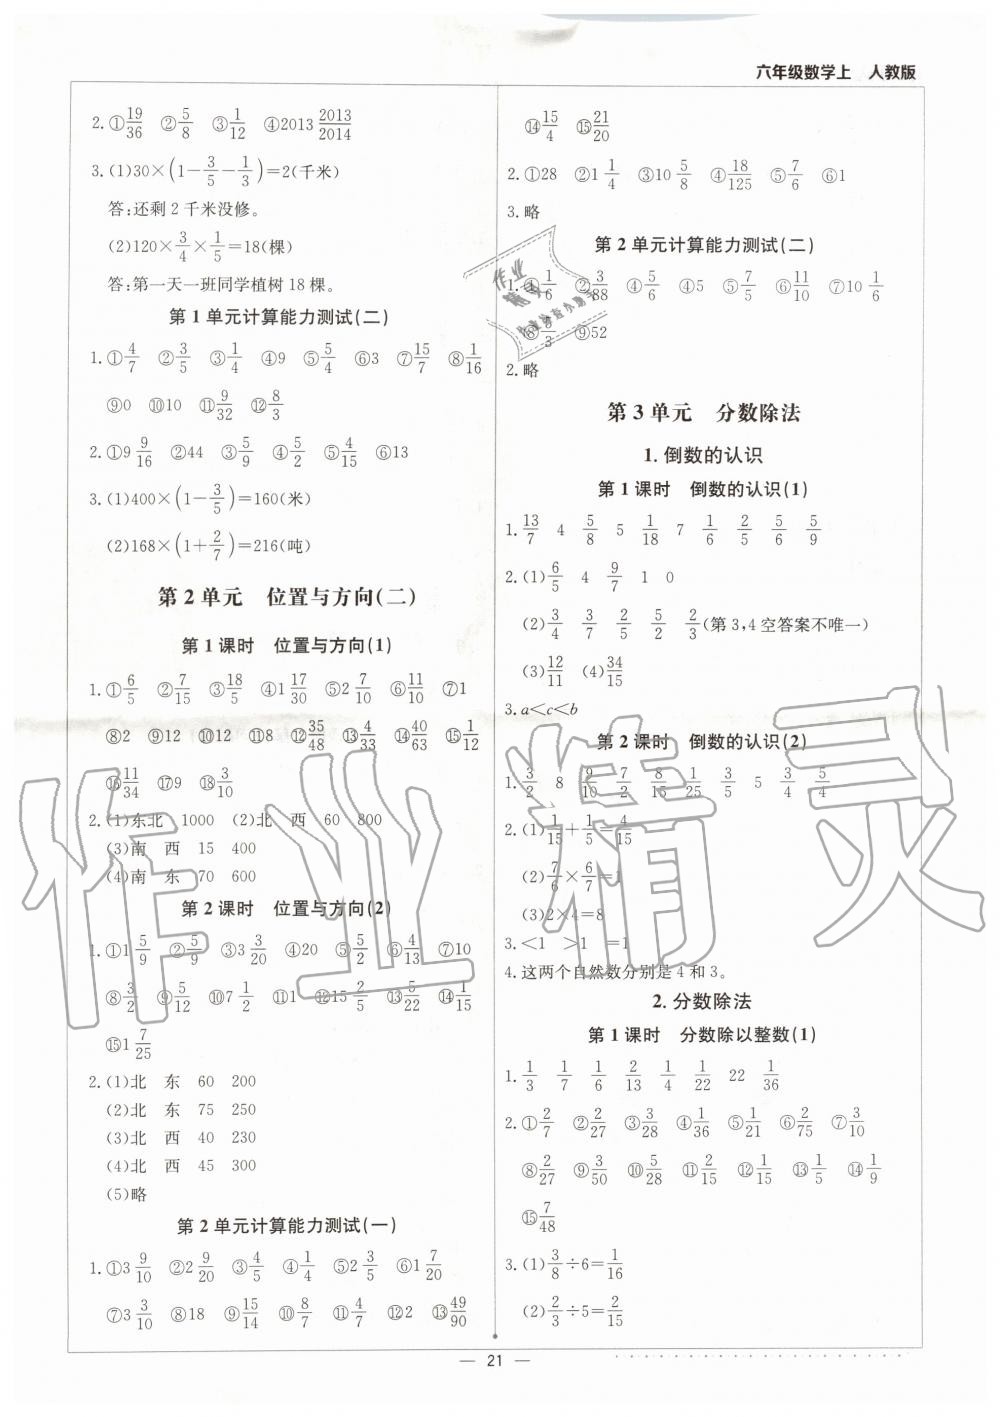 六年级数学上 人教版
2.①19/36 ②5/8 ③1/12 ④2013 2013/2014
3.(1)30×(1-3/5-1/3)=2(千米)
答:还剩2千米没修。
(2)120×3/4×1/5=18(棵)
答:第一天一班同学植树18棵。
第1单元计算能力测试(二)
1.①4/7 ②3/5 ③1/4 ④9 ⑤5/4 ⑥3 ⑦15/7 ⑧1/16
⑨0 ⑩10 ⑪9/32 ⑫8/3
2.①9 9/16 ②44 ③5/9 ④5/2 ⑤4/15 ⑥13
3.(1)400×(1-3/5)=160(米)
(2)168×(1+2/7)=216(吨)
第2单元 位置与方向(二)
第1课时 位置与方向(1)
1.①6/5 ②7/15 ③18/5 ④1 17/30 ⑤2 7/10 ⑥11/10 ⑦1
⑧2 ⑨12 ⑩12 ⑪8 ⑫35/48 ⑬4/33 ⑭40/63 ⑮1/12
⑯11/34 ⑰9 ⑱3/10
2.(1)东北 1000 (2)北 西 60 800
(3)南 西 15 400
(4)南 东 70 600
第2课时 位置与方向(2)
1.①1 5/9 ②5/9 ③3 3/20 ④20 ⑤5/2 ⑥4/13 ⑦10
⑧3/2 ⑨5/12 ⑩7 1/2 ⑪1 ⑫15 2/5 ⑬5/22 ⑭1/15
⑮1 7/25
2.(1)北 东 60 200
(2)北 东 75 250
(3)北 西 40 230
(4)北 西 45 300
(5)略
第2单元计算能力测试(一)
1.①3 9/10 ②2 9/20 ③4/5 ④1/4 ⑤2 3/5 ⑥1 7/20
⑦3 3/10 ⑧18 ⑨15/14 ⑩8/7 ⑪4/7 ⑫2 ⑬49/90
⑭15/4 ⑮21/20
2.①28 ②1 1/4 ③10 5/8 ④18/125 ⑤7/6 ⑥1
3.略
第2单元计算能力测试(二)
1.①1/6 ②3/88 ④5/6 ④5 ⑤7/5 ⑥11/10 ⑦10 1/6
⑨52
2.略
第3单元 分数除法
1.倒数的认识
第1课时 倒数的认识(1)
1.13/7 4 5/8 5 1/18 7 1/6 2/6 5/6 5/9
2.(1)6/5 4 9/7 1 0
(2)3/4 3/7 2/5 5/2 2/3(第3,4空答案不唯一)
(3)12/11 (4)34/15
3.a<c<b
第2课时 倒数的认识(2)
1.3/2 8 9/10 7/2 8/15 1/25 3/5 5 3/4 5/4
2.(1)1/15+1/5=4/15
(2)7/6×6/7=1
(3)2×4=8
3.<1 >1 =1
4.这两个自然数分别是4和3。
2.分数除法
第1课时 分数除以整数(1)
1.1/3 1/7 1/6 2/13 1/4 1/22 22 1/36
2.①2/7 ②2/27 ③3/28 ④1/36 ⑤1/21 ⑥2/75 ⑦3/10
⑧2/27 ⑨3/50 ⑩5/28 ⑪2/15 ⑫1/15 ⑬1/5 ⑭1/9
⑮7/48
3.(1)3/8÷6=1/16
(2)2/3÷5=2/15
— 21 —
作业精灵